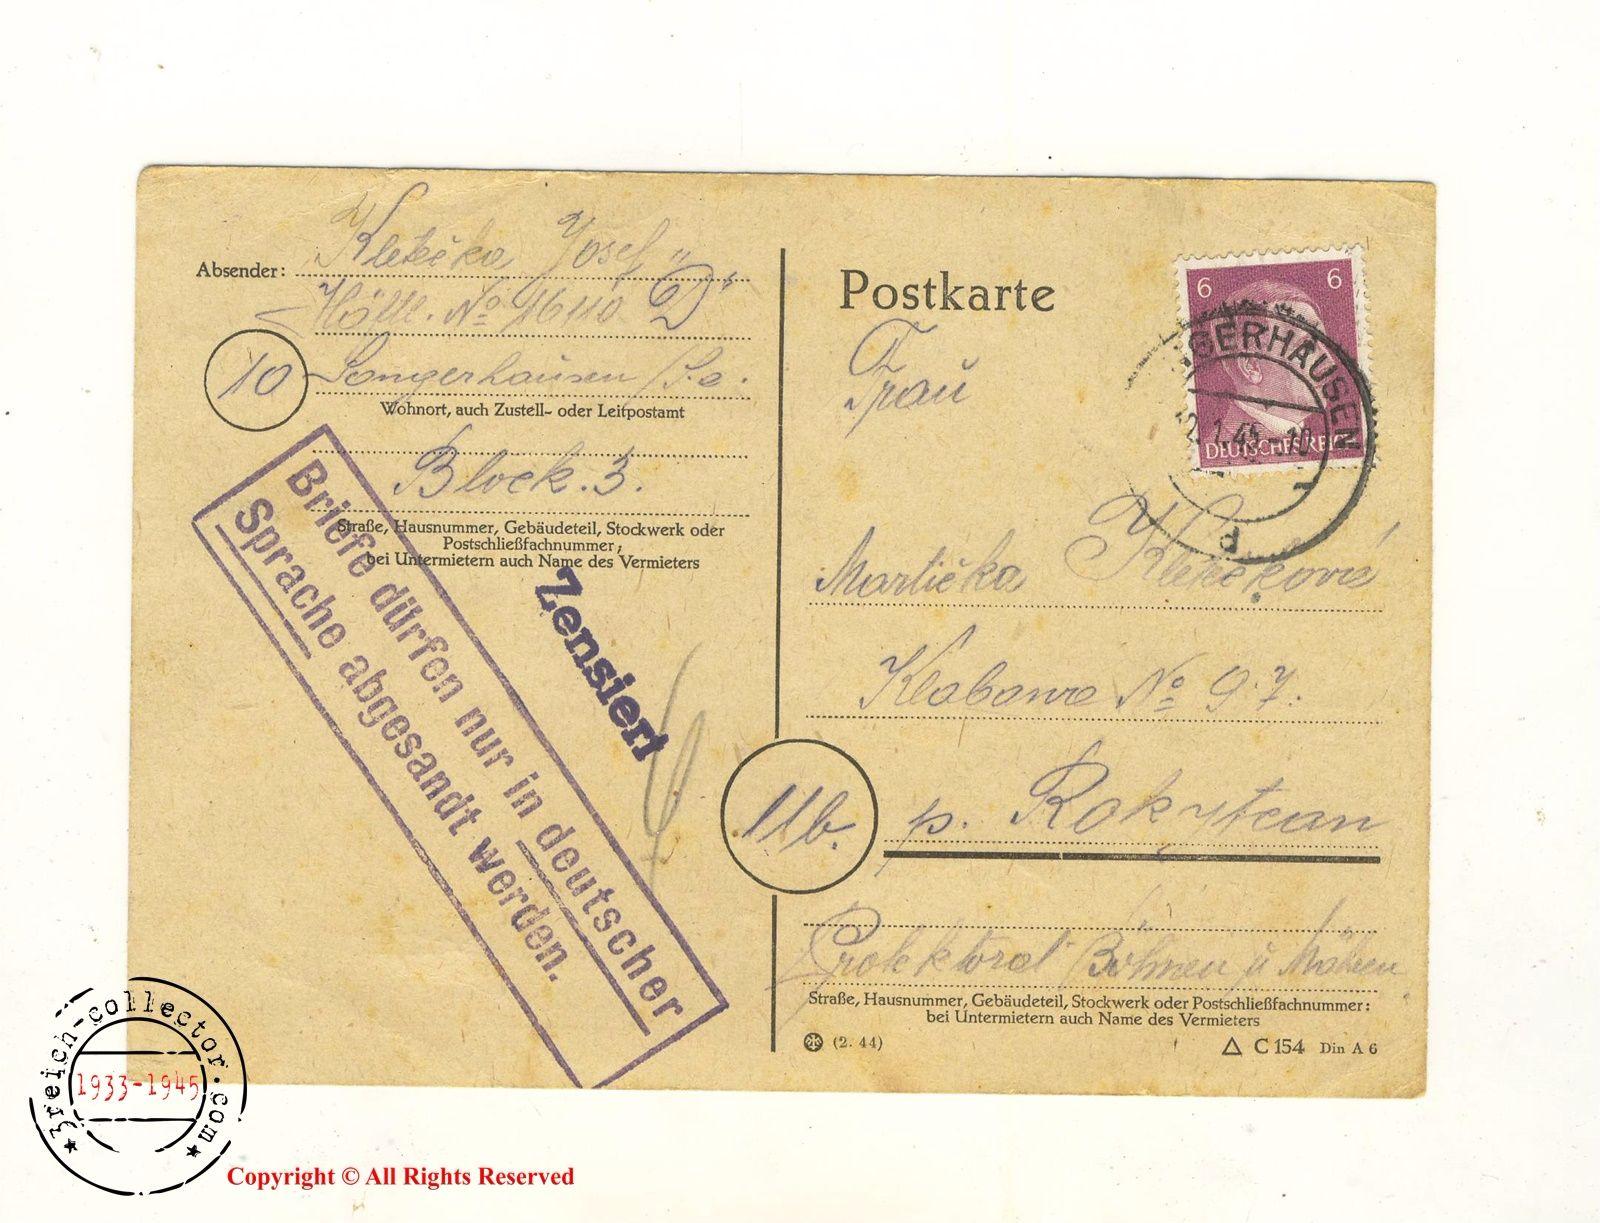 Absender: Kletečka Josef "D"
Häftl. No 16110
10 Sangerhausen /
Wohnort, auch Zustell- oder Leitpostamt
Block. 3.
Straße, Hausnummer, Gebäudeteil, Stockwerk oder
Postschließfachnummer;
bei Untermietern auch Name des Vermieters
Briefe dürfen nur in deutscher
Sprache abgesandt werden.
Zensiert
Postkarte
6 6
DEUTSCHES REICH
GERHAUSEN
Frau
Kletečková
No 97.
11b. p. Rokytzan
Protektorat Böhmen u Mähren
Straße, Hausnummer, Gebäudeteil, Stockwerk oder Postschließfachnummer:
bei Untermietern auch Name des Vermieters
(2. 44)
C 154 Din A 6
3reich-collector.com
1933-1945
Copyright © All Rights Reserved